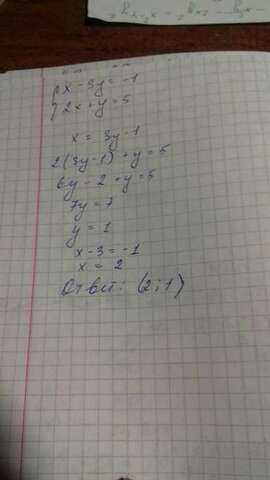 x - 3y = -1
2x + y = 5
x = 3y - 1
2(3y-1) + y = 5
6y - 2 + y = 5
7y = 7
y = 1
x - 3 = -1
x = 2
Ответ: (2;1)